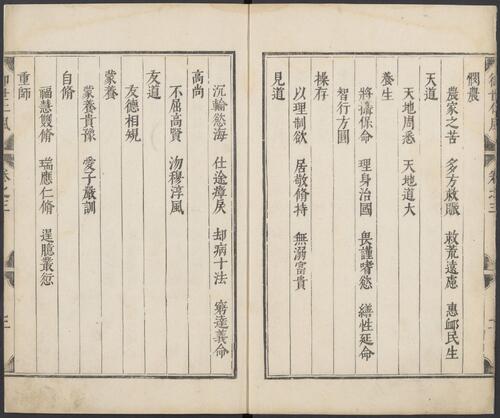 憫農
農家之苦 多方救賑 救荒遠慮 惠䘏民生
天道
天地周悉 天地道大
養生
將攝保命 理身治國 畏謹嗜慾 繕性延命
智行方圓
操存
以理制欲 居敬脩持 無溺富貴
見道
沉輪慾海 仕途瘴戾 却病十法 窮達義命
高尚
不屈高賢 沕穆淳風
友道
友德相規
蒙養
蒙養貴豫 愛子嚴訓
自脩
福慧雙脩 瑞應仁脩 逞臆叢愆
重師